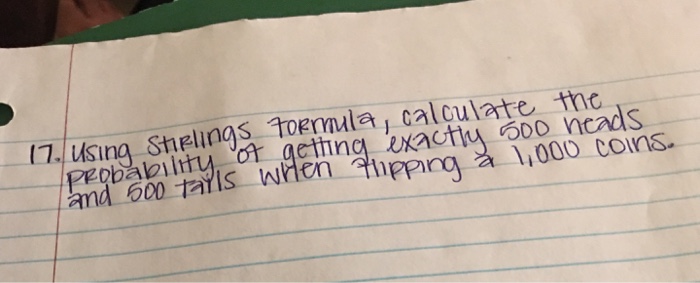 17. Using Stirlings formula, calculate the
probability of getting exactly 500 heads
and 500 tails when flipping a 1,000 coins.